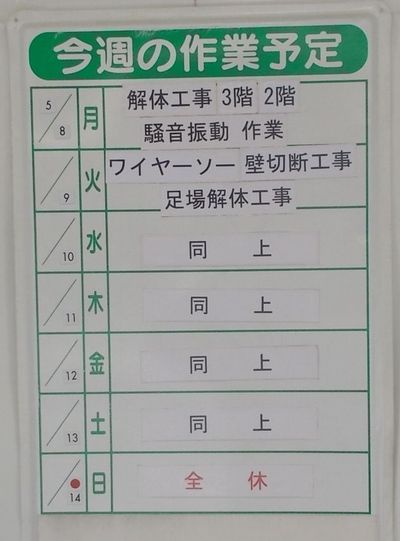 今週の作業予定
5/8 月 解体工事 3階 2階
騒音振動 作業
/9 火 ワイヤーソー 壁切断工事
足場解体工事
/10 水 同 上
/11 木 同 上
/12 金 同 上
/13 土 同 上
/14 日 全 休